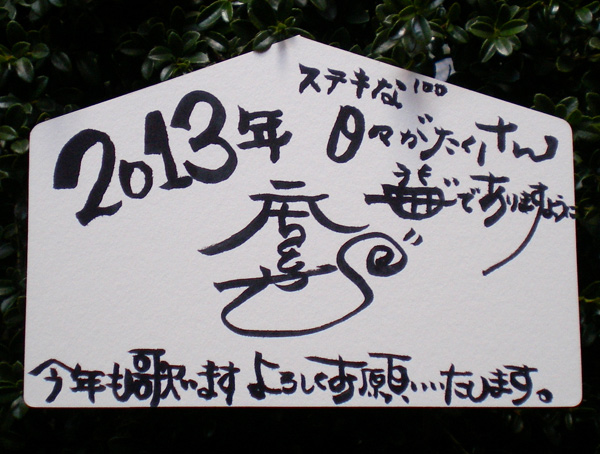 2013年
ステキな
日々がたくさん
でありますように
今年も歌います よろしくお願いいたします。